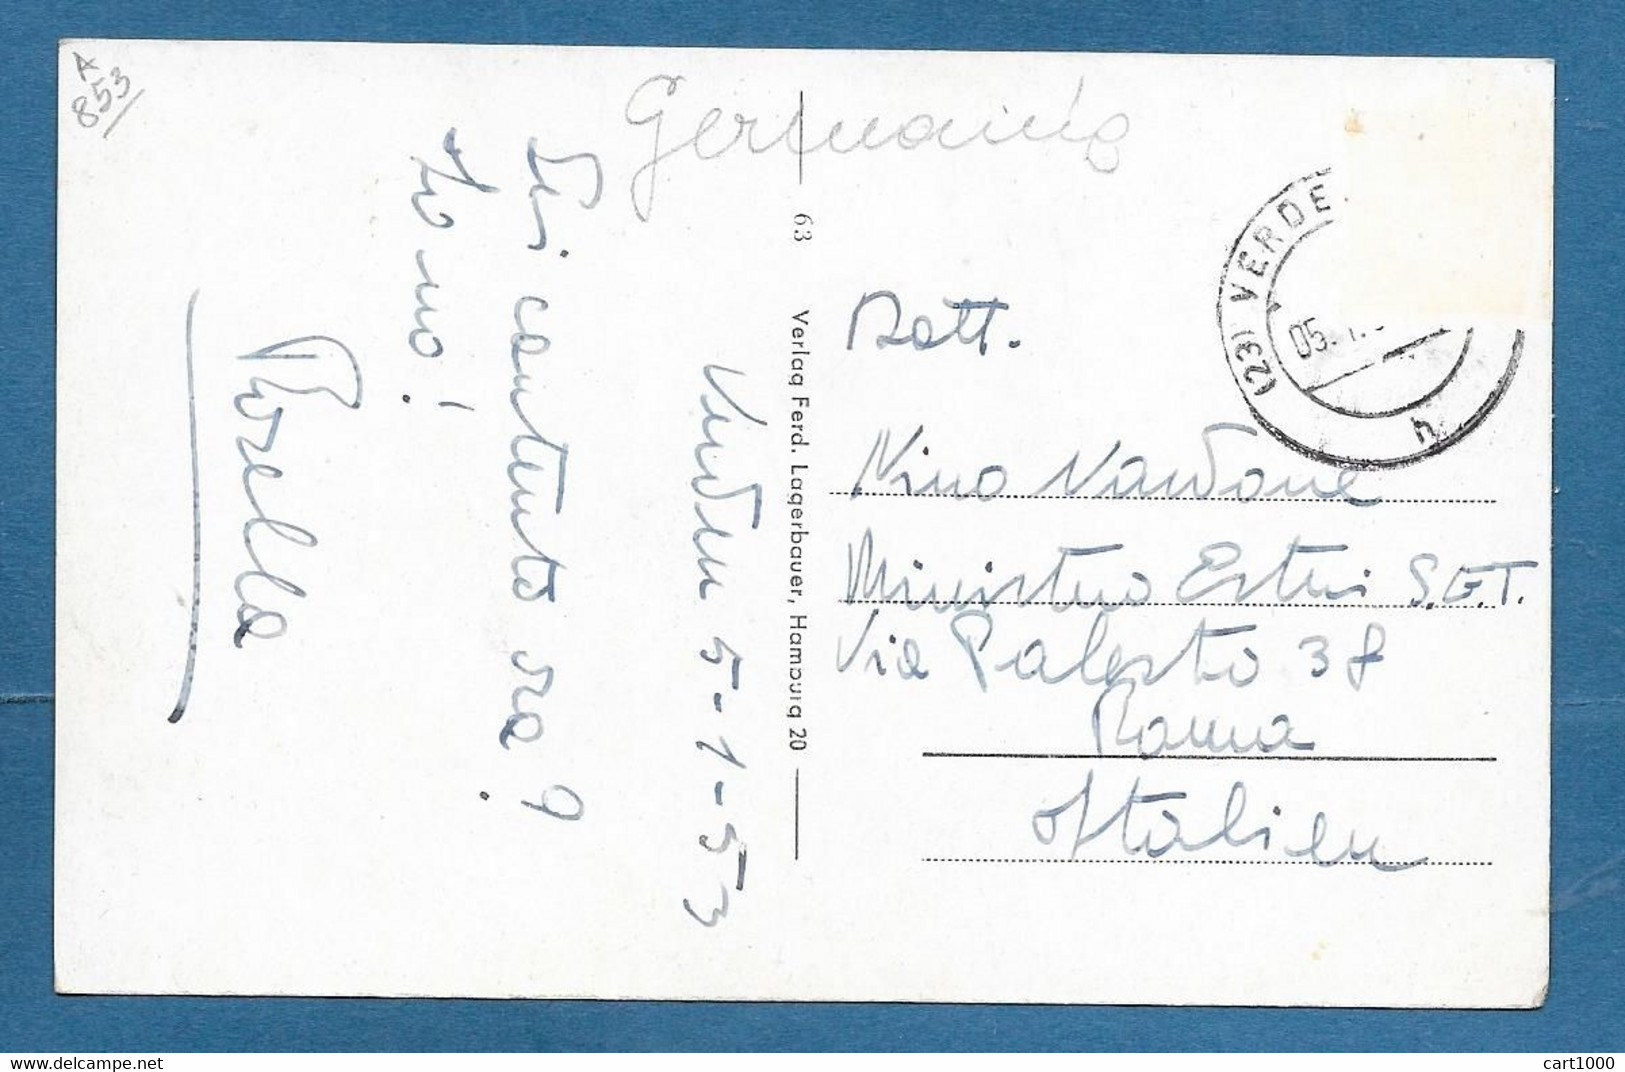 A
853
Germania
Verden 5-1-53
Sei contento ora?
Io no!
Rosella
63
Verlag Ferd. Lagerbauer, Hamburg 20
(23) VERDE
05.1.
h
Dott.
Nino Nardone
Ministero Esteri S.E.T.
Via Palestro 38
Roma
Italien
www.delcampe.net
cart1000